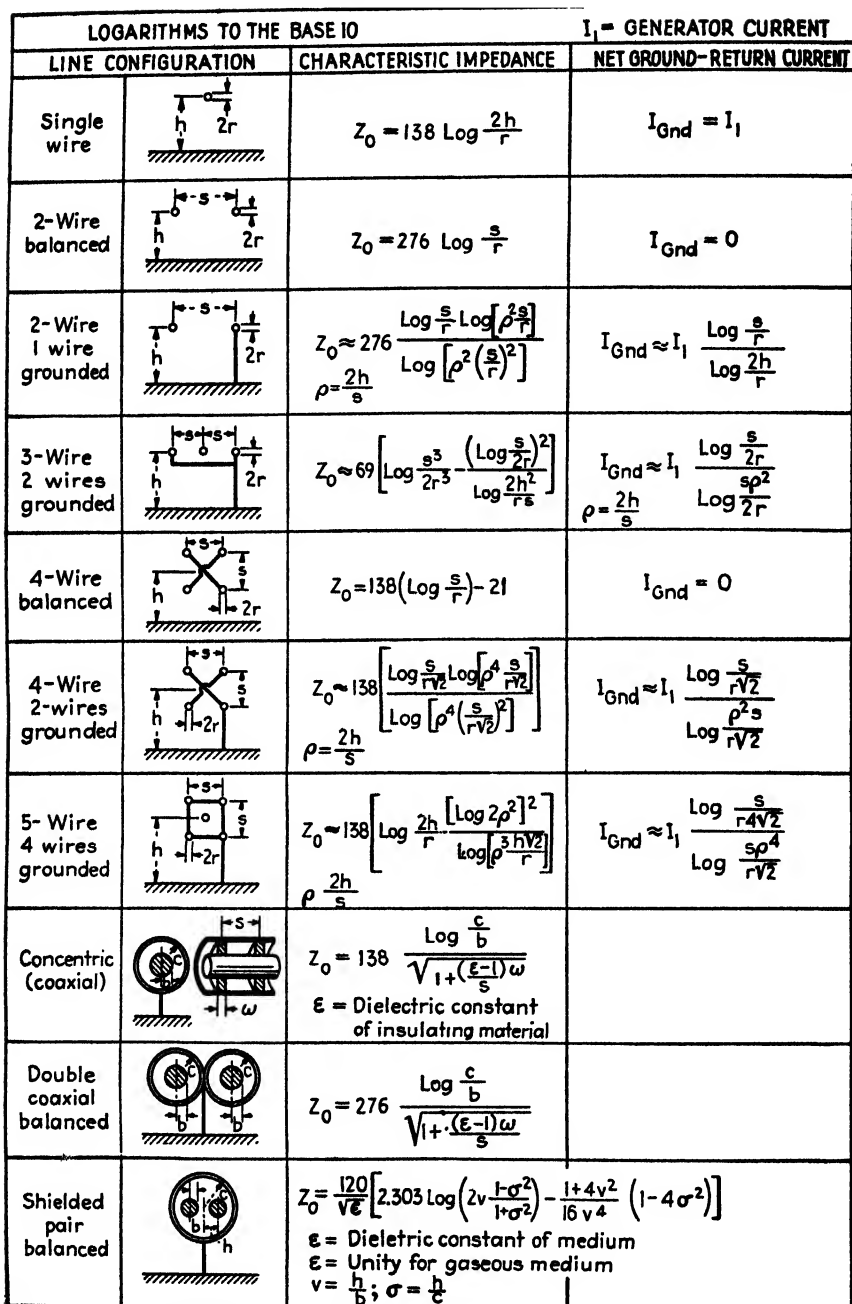 LOGARITHMS TO THE BASE 10 I₁ = GENERATOR CURRENT
LINE CONFIGURATION CHARACTERISTIC IMPEDANCE NET GROUND-RETURN CURRENT
Single wire
h 2r
Z₀ = 138 Log 2h/r
I_Gnd = I₁
2-Wire balanced
s h 2r
Z₀ = 276 Log s/r
I_Gnd = 0
2-Wire 1 wire grounded
s h 2r
Z₀ ≈ 276 Log s/r Log[ρ² s/r] / Log[ρ²(s/r)²]
ρ = 2h/s
I_Gnd ≈ I₁ Log s/r / Log 2h/r
3-Wire 2 wires grounded
s s h 2r
Z₀ ≈ 69 [Log s³/2r³ - (Log s/2r)² / Log 2h²/rs]
I_Gnd ≈ I₁ Log s/2r / Log sρ²/2r
ρ = 2h/s
4-Wire balanced
s s h 2r
Z₀ = 138(Log s/r) - 21
I_Gnd = 0
4-Wire 2-wires grounded
s s h 2r
Z₀ ≈ 138 [Log s/r√2 Log[ρ⁴ s/r√2] / Log[ρ⁴(s/r√2)²]]
ρ = 2h/s
I_Gnd ≈ I₁ Log s/r√2 / Log ρ²s/r√2
5-Wire 4 wires grounded
s s h 2r
Z₀ ≈ 138 [Log 2h/r [Log 2ρ²]² / Log[ρ³ h√2/r]]
ρ 2h/s
I_Gnd ≈ I₁ Log s/r4√2 / Log sρ⁴/r√2
Concentric (coaxial)
c b s ω
Z₀ = 138 Log c/b / √(1+(ε-1)ω/s)
ε = Dielectric constant
of insulating material
Double coaxial balanced
c c b b
Z₀ = 276 Log c/b / √(1+(ε-1)ω/s)
Shielded pair balanced
c b h
Z₀ = 120/√ε [2.303 Log(2v 1-σ²/1+σ²) - 1+4v²/16v⁴ (1-4σ²)]
ε = Dieletric constant of medium
ε = Unity for gaseous medium
v = h/b; σ = h/c